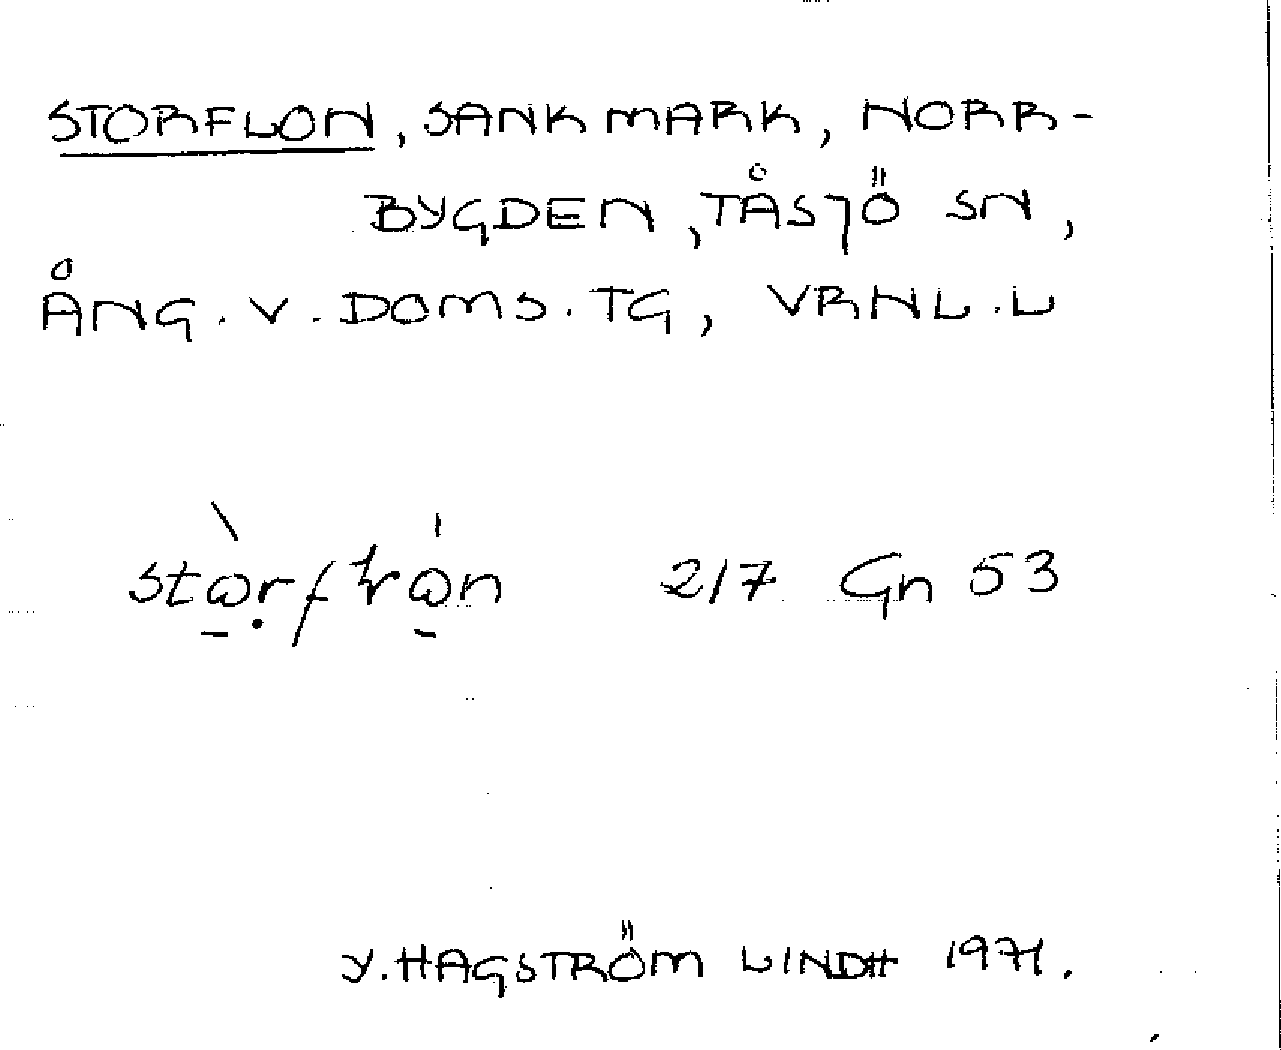 STORFLON, SANKMARK, NORR-
BYGDEN, TÅSJÖ SN,
ÅNG. V. DOMS. TG, VRNL. L
2/7 Gn 53
Y. HAGSTRÖM LINDH 1971.